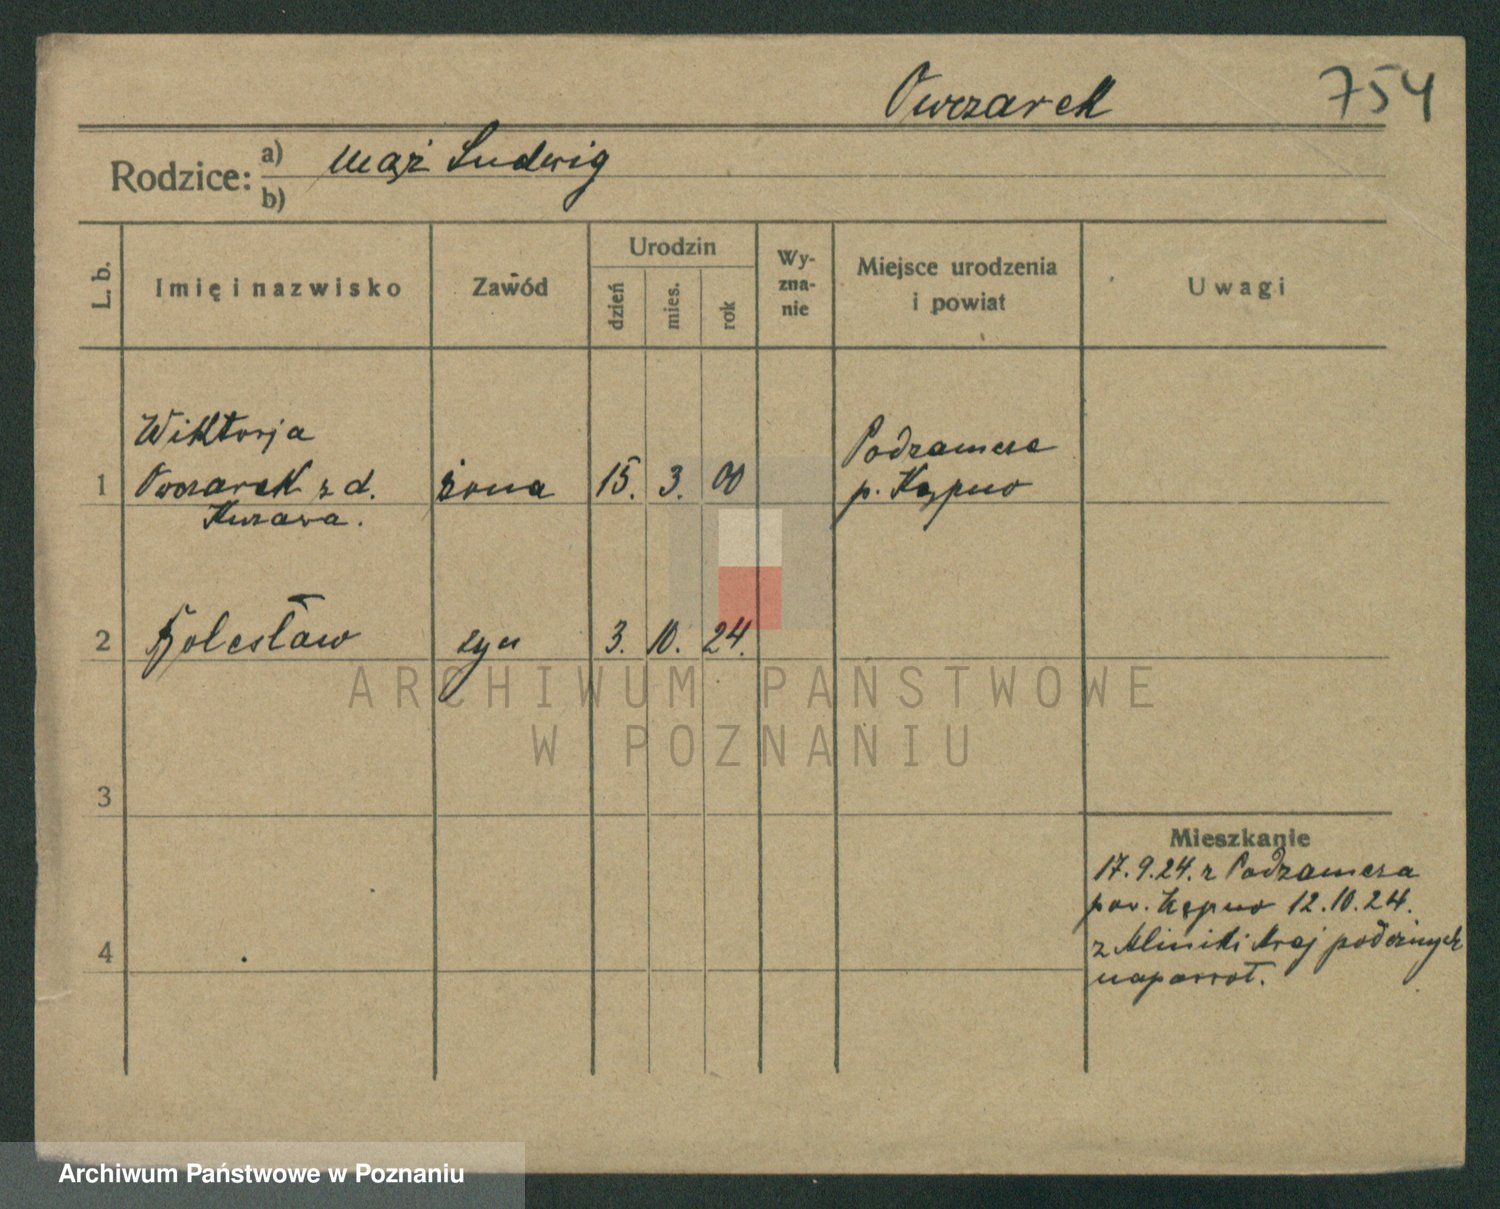 Owczarek 754
Rodzice: a) mąż Ludwig
b)
L. b. Imię i nazwisko Zawód Urodzin Wy-zna-nie Miejsce urodzenia i powiat Uwagi
dzień mies. rok
Wiktorja Podzamcze
1 Owczarek z d. żona 15. 3. 00 p. Kępno
Kurzawa.
2 Bolesław syn 3. 10. 24.
ARCHIWUM PAŃSTWOWE
W POZNANIU
3
Mieszkanie
17.9.24. z Podzamcza
pow. Kępno 12.10.24.
4 z kliniki kraj położnych
napowrót.
Archiwum Państwowe w Poznaniu